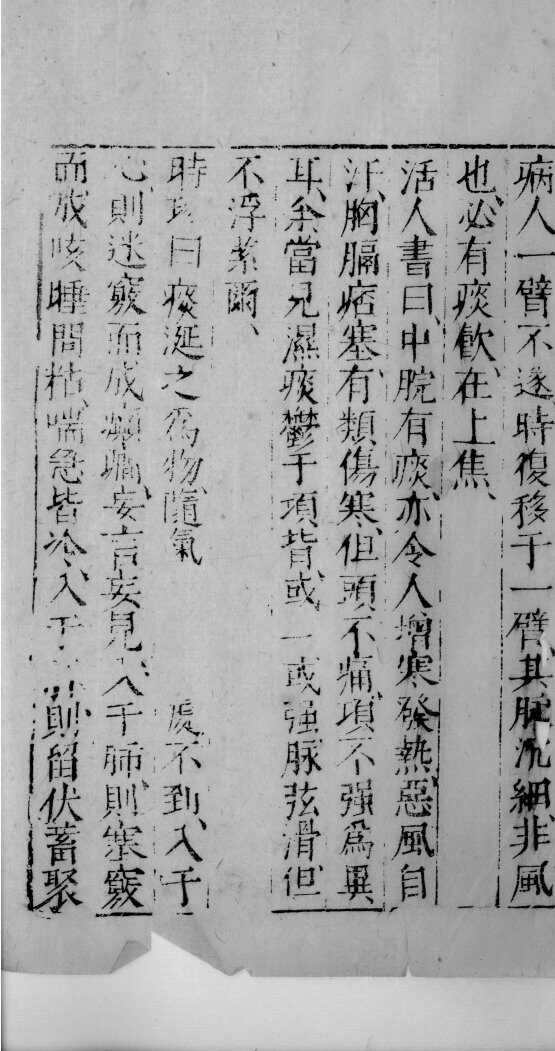 病人一臂不遂時復移于一臂其脈沉細非風
也必有痰飲在上焦
活人書曰中脘有痰亦令人增寒發熱惡風自
汗胸膈痞塞有類傷寒但頭不痛項不强爲異
耳余嘗見濕痰鬱于項背或一或强脉弦滑但
不浮紧爾
時珍曰痰涎之爲物隨氣 處不到入于
心則迷竅而成癲癎妄言妄見入于肺則塞竅
而成咳唾間粘喘急皆冷入于 則留伏蓄聚